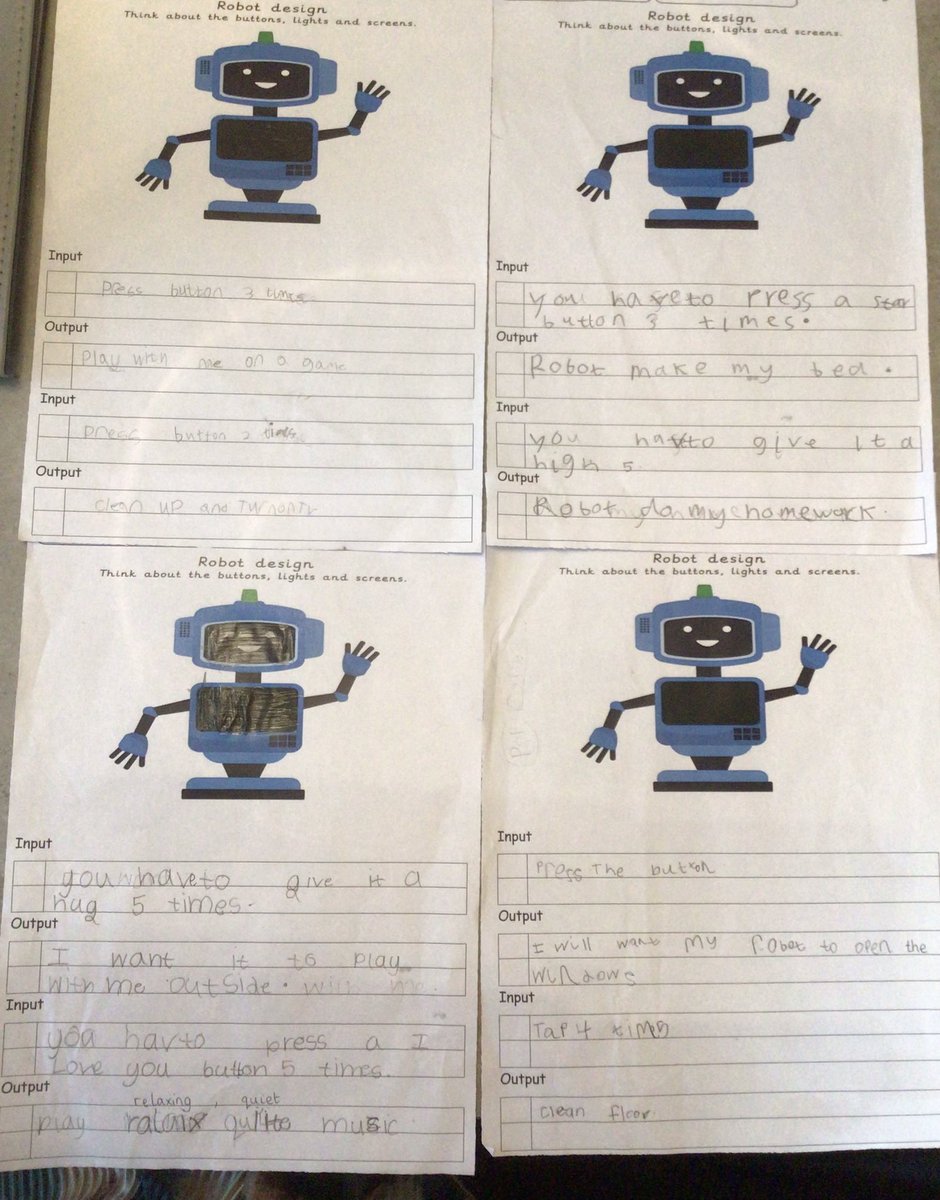 Robot design
Think about the buttons, lights and screens.
Input
press button 3 times
Output
Play with me on a game
Input
press button 2 times
Output
clean up and
Robot design
Think about the buttons, lights and screens.
Input
you haveto press a
button 3 times.
Output
Robot make my bed.
Input
you havto give it a
high 5.
Output
Robot do my homework.
Robot design
Think about the buttons, lights and screens.
Input
you haveto give it a
hug 5 times.
Output
I want it to play
with me outside. with me.
Input
you havto press a I
Love you button 5 times.
Output
relaxing, quiet
play music
Robot design
Think about the buttons, lights and screens.
Input
Press The button
Output
I will want my robot to open the
windows
Input
Tap 4 times
Output
clean floor.